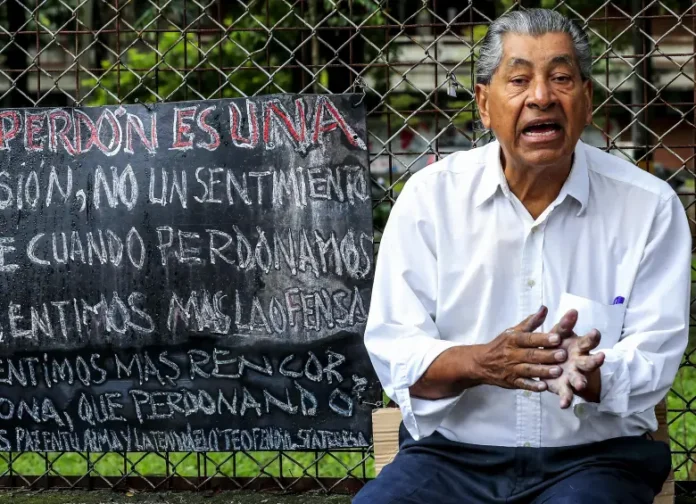 PERDÓN ES UNA
SION, NO UN SENTIMIENTO
E CUANDO PERDONAMOS
ENTIMOS MAS LA OFENSA
ENTIMOS MAS RENCOR
ONA, QUE PERDONANDO
PAZ EN TU ALMA Y LA TENDRA EL Q TE OFENDIO